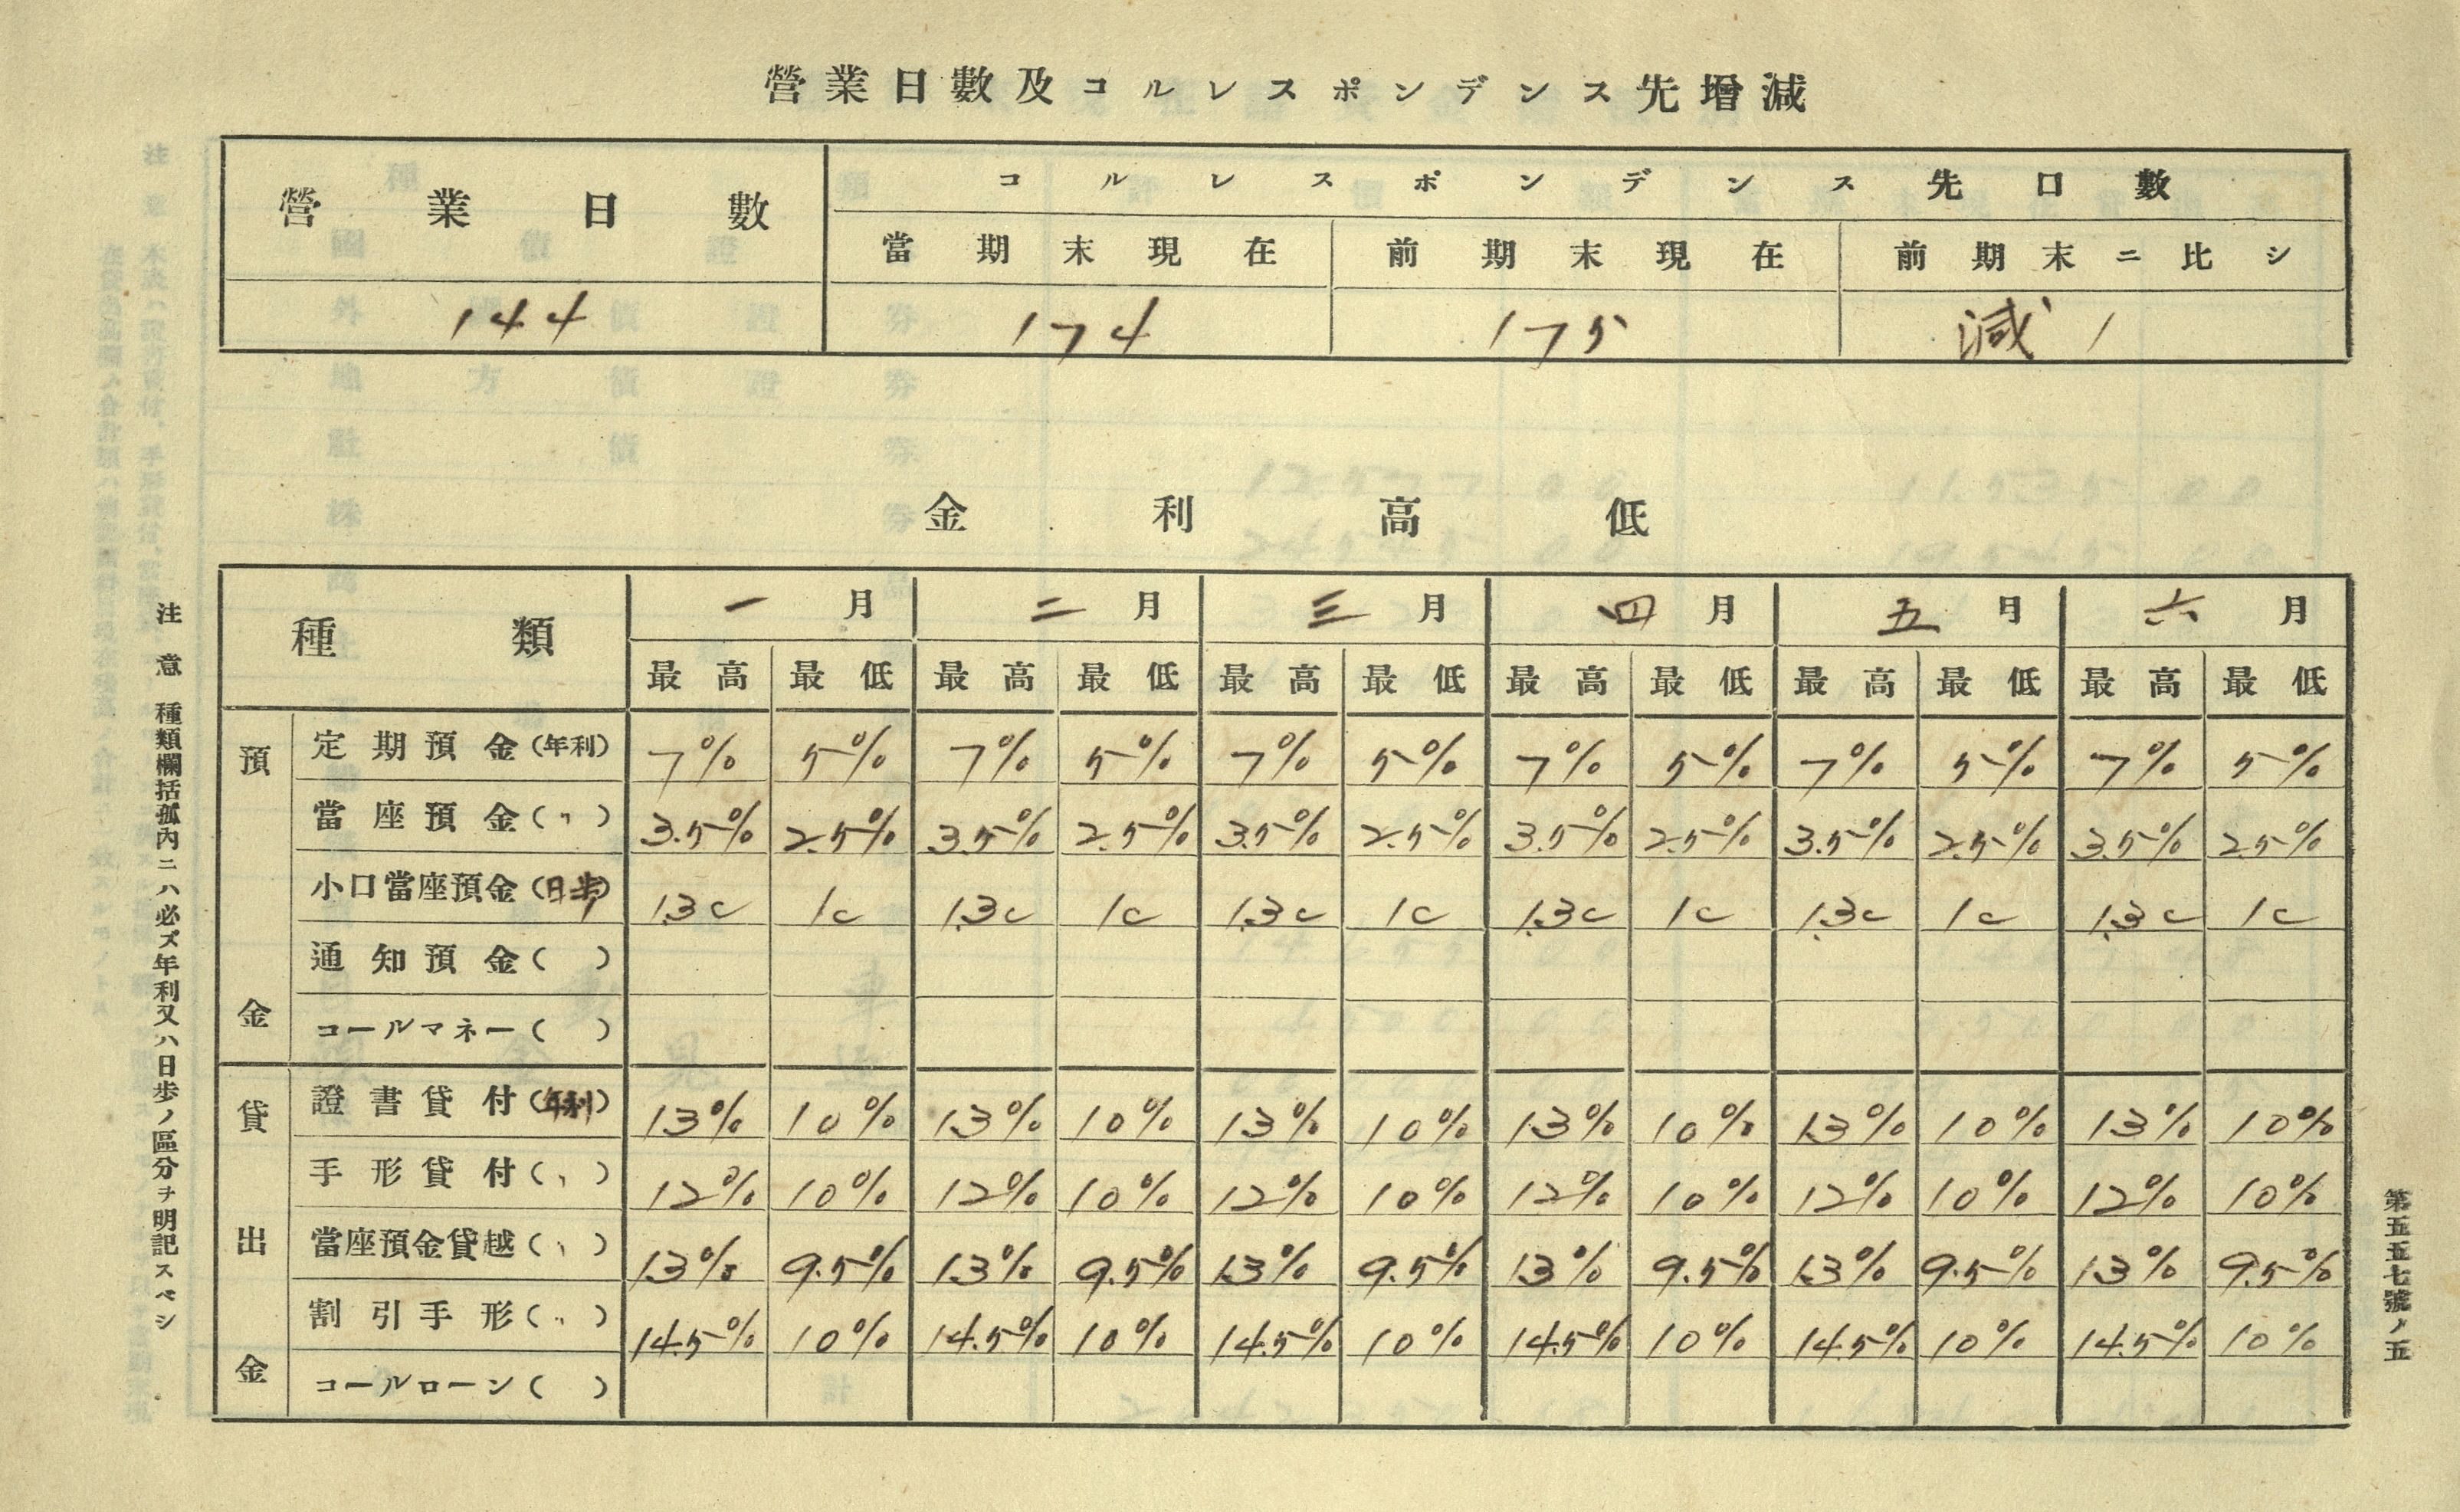 營業日數及コルレスポンデンス先增減
營業日數 コルレスポンデンス先口數
當期末現在 前期末現在 前期末ニ比シ
144 174 175 減 1
金利高低
種類 一月 二月 三月 四月 五月 六月
最高 最低 最高 最低 最高 最低 最高 最低 最高 最低 最高 最低
預金
定期預金(年利) 7% 5% 7% 5% 7% 5% 7% 5% 7% 5% 7% 5%
當座預金(〃) 3.5% 2.5% 3.5% 2.5% 3.5% 2.5% 3.5% 2.5% 3.5% 2.5% 3.5% 2.5%
小口當座預金(日歩) 1.3c 1c 1.3c 1c 1.3c 1c 1.3c 1c 1.3c 1c 1.3c 1c
通知預金( )
コールマネー( )
貸出金
證書貸付(年利) 13% 10% 13% 10% 13% 10% 13% 10% 13% 10% 13% 10%
手形貸付(〃) 12% 10% 12% 10% 12% 10% 12% 10% 12% 10% 12% 10%
當座預金貸越(〃) 13% 9.5% 13% 9.5% 13% 9.5% 13% 9.5% 13% 9.5% 13% 9.5%
割引手形(〃) 14.5% 10% 14.5% 10% 14.5% 10% 14.5% 10% 14.5% 10% 14.5% 10%
コールローン( )
注意 種類欄括孤內ニハ必ズ年利又ハ日歩ノ區分ヲ明記スベシ
第五五七號ノ五